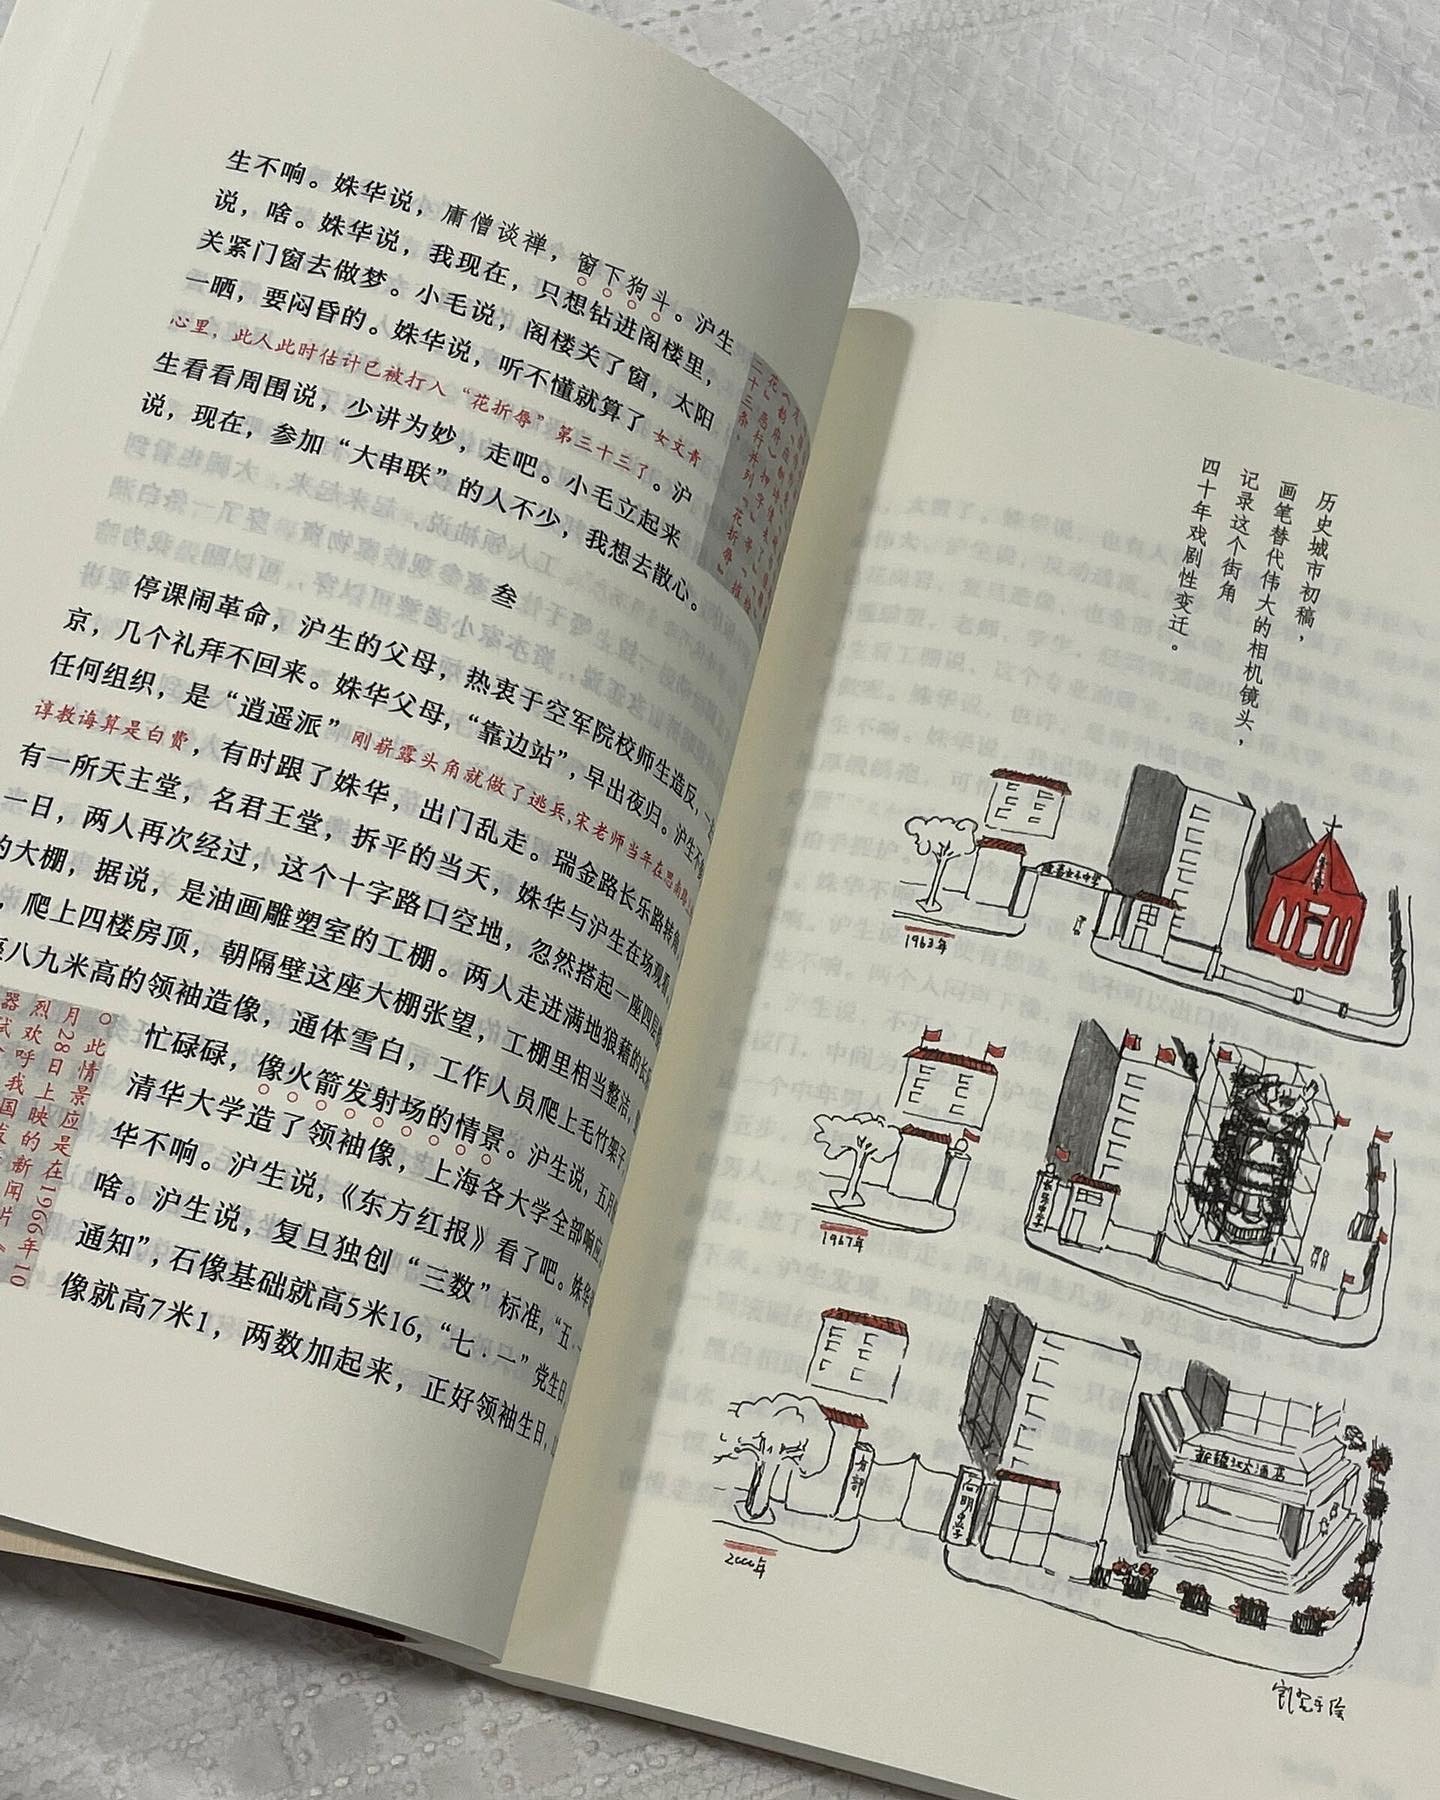 生不响。姝华说，庸僧谈禅，窗下狗斗。沪生
说，啥。姝华说，我现在，只想钻进阁楼里，
关紧门窗去做梦。小毛说，阁楼关了窗，太阳
一晒，要闷昏的。姝华说，听不懂就算了 女文青
心里，此人此时估计已被打入“花折辱”第三十三了。沪
生看看周围说，少讲为妙，走吧。小毛立起来
说，现在，参加“大串联”的人不少，我想去散心。
叁
停课闹革命，沪生的父母，热衷于空军院校师生造反，一
京，几个礼拜不回来。姝华父母，“靠边站”，早出夜归。沪生不
任何组织，是“逍遥派” 刚崭露头角就做了逃兵，宋老师当年在思南路
谆教诲算是白费，有时跟了姝华，出门乱走。瑞金路长乐路转角
有一所天主堂，名君王堂，拆平的当天，姝华与沪生在场观
一日，两人再次经过，这个十字路口空地，忽然搭起一座四层
的大棚，据说，是油画雕塑室的工棚。两人走进满地狼藉的长
爬上四楼房顶，朝隔壁这座大棚张望，工棚里相当整洁，
八九米高的领袖造像，通体雪白，工作人员爬上毛竹架子，
忙碌碌，像火箭发射场的情景。沪生说，五月
清华大学造了领袖像，上海各大学全部响应
华不响。沪生说，《东方红报》看了吧。姝华
啥。沪生说，复旦独创“三数”标准，“五·一
通知”，石像基础就高5米16，“七·一”党生日
像就高7米1，两数加起来，正好领袖生日，
此情景应是
月28日上映的
烈欢呼我国
新闻片《
在1966年10
历史城市初稿，
画笔替代伟大的相机镜头，
记录这个街角
四十年戏剧性变迁。
1963年
1967年
长乐中学
分部
向明中学
新锦江大酒店
2000年